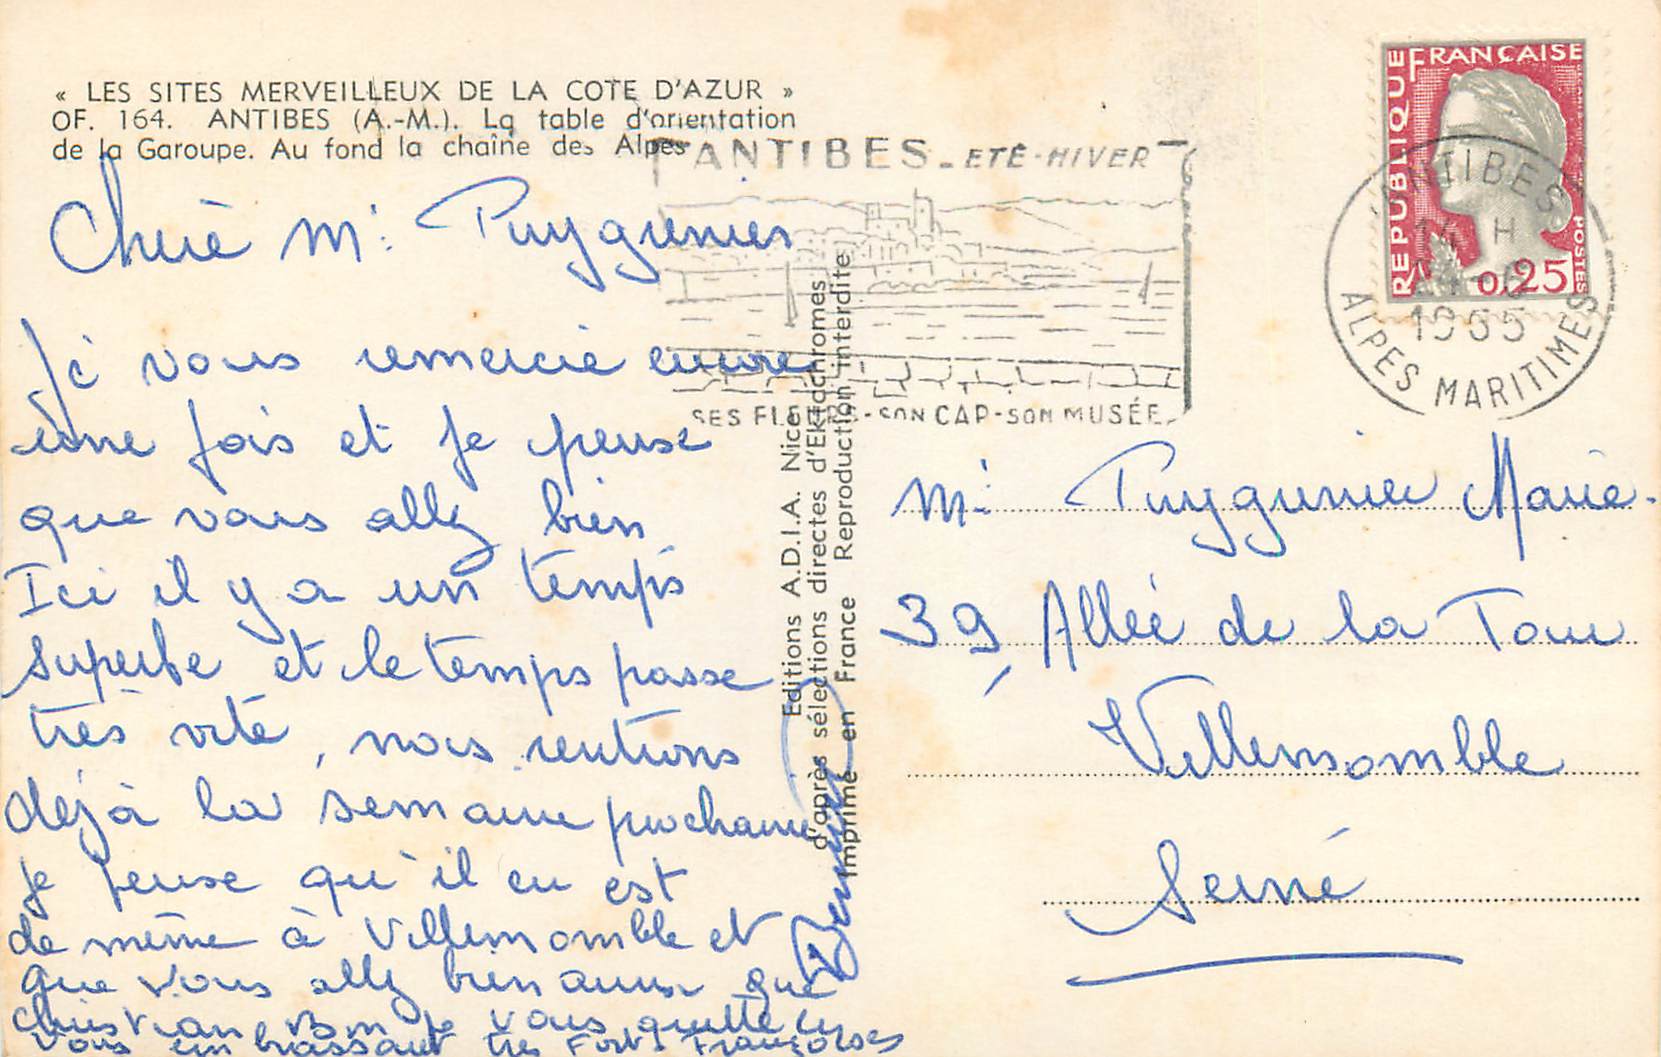 « LES SITES MERVEILLEUX DE LA COTE D'AZUR »
OF. 164. ANTIBES (A.-M.). La table d'orientation
de la Garoupe. Au fond la chaîne des Alpes
ANTIBES - ETÉ - HIVER
SES FLEURS - SON CAP - SON MUSÉE
RÉPUBLIQUE FRANÇAISE
POSTES
0,25
ANTIBES
H
1965
ALPES MARITIMES
Editions A.D.I.A. Nice
d'après sélections directes d'Ektachromes
Imprimé en France Reproduction interdite
Chère M
vous remercie encore
une fois et je pense
que vous allez bien
Ici il y a un temps
superbe et le temps passe
très vite, nous rentrons
déjà la semaine prochaine
je pense qu'il en est
de même à Villemomble et
que vous allez bien aussi que
christian Bon je vous quitte en
vous embrassant très Fort. Françoise
M Marie.
39, Allée de la Tour
Villemomble
Seine